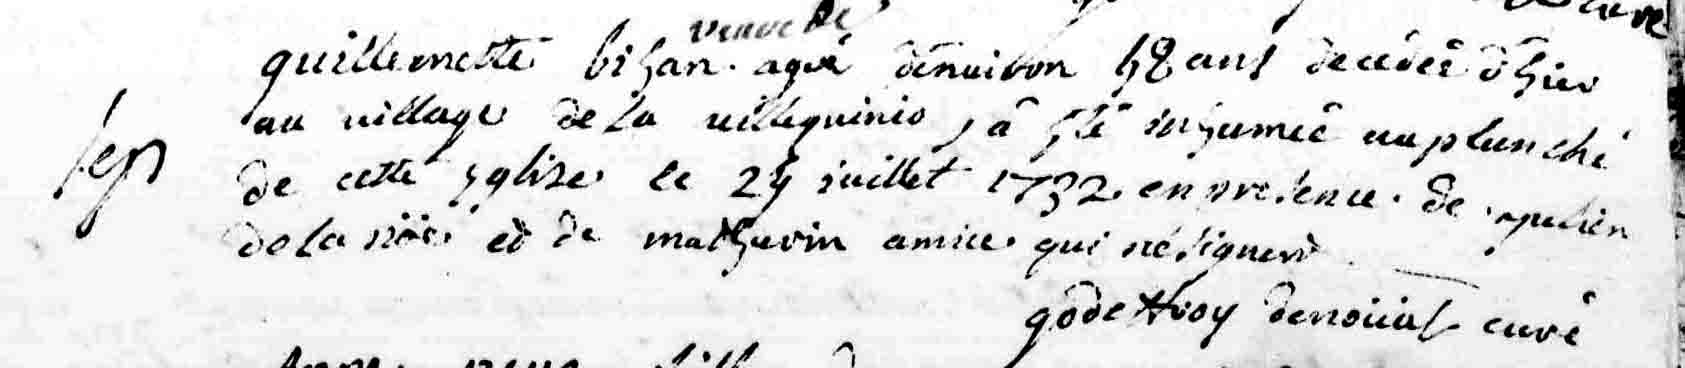 curé
veuve de
guillemette bihan agée d'enuiron 48 ans decedéé d'hier
au village de la villequinio, â été inhumée au planché
de cette yglize le 29 juillet 1732 en presence de
de la nöe et de mathurin amice qui ne signent
godeffroy denoüal curé
fille